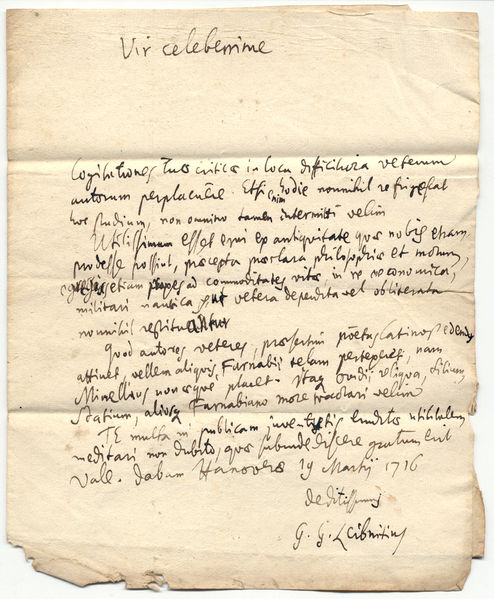 Vir celeberrime
Cogitationes Tuae criticae in loca difficiliora veterum
autorum perplacuere. Etsi enim hodie nonnihil refrigescat
hoc studium, non omnino tamen intermitti velim
Utilissimum esset erui ex antiquitate quae nobis etiam
prodesse possint, praecepta praeclara philosophiae et morum,
etiam ad commoditates vitae in re oeconomica,
militari nautica, ut vetera deperdita vel obliterata
nonnihil restituantur
Quod autores veteres, praesertim poetas Latinos edendos
attinet, vellem aliquis Farnabii telam pertexeret, nam
Minellius non aeque placet. Itaque Ovidii reliqua, Silium,
Statium, aliosq Farnabiano more tractari velim
TE multa in publicam juventutis eruditae utilitatem
meditari non dubito, quae subinde discere gratum erit
Vale. dabam Hanoverae 19 Martij 1716
deditissimus
G. G. Leibnitius